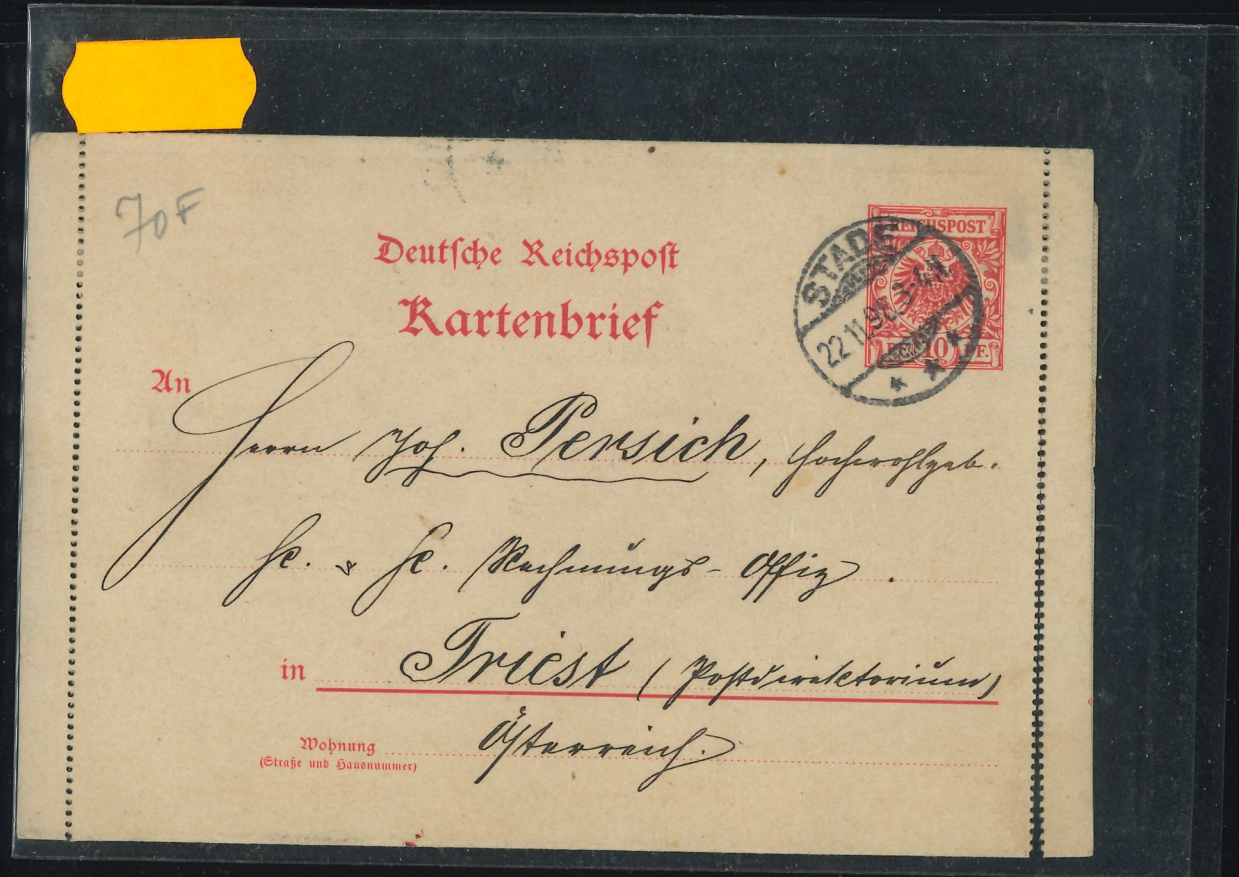 70F
Deutsche Reichspost
Kartenbrief
REICHSPOST
10 PF.
STADE
22.11.95. 3-4N
* * *
An
Herrn Joh. Persich, Hochwohlgeb.
K. & K. Rechnungs-Offiz.
in Triest (Postdirektorium)
Österreich.
Wohnung
(Straße und Hausnummer)